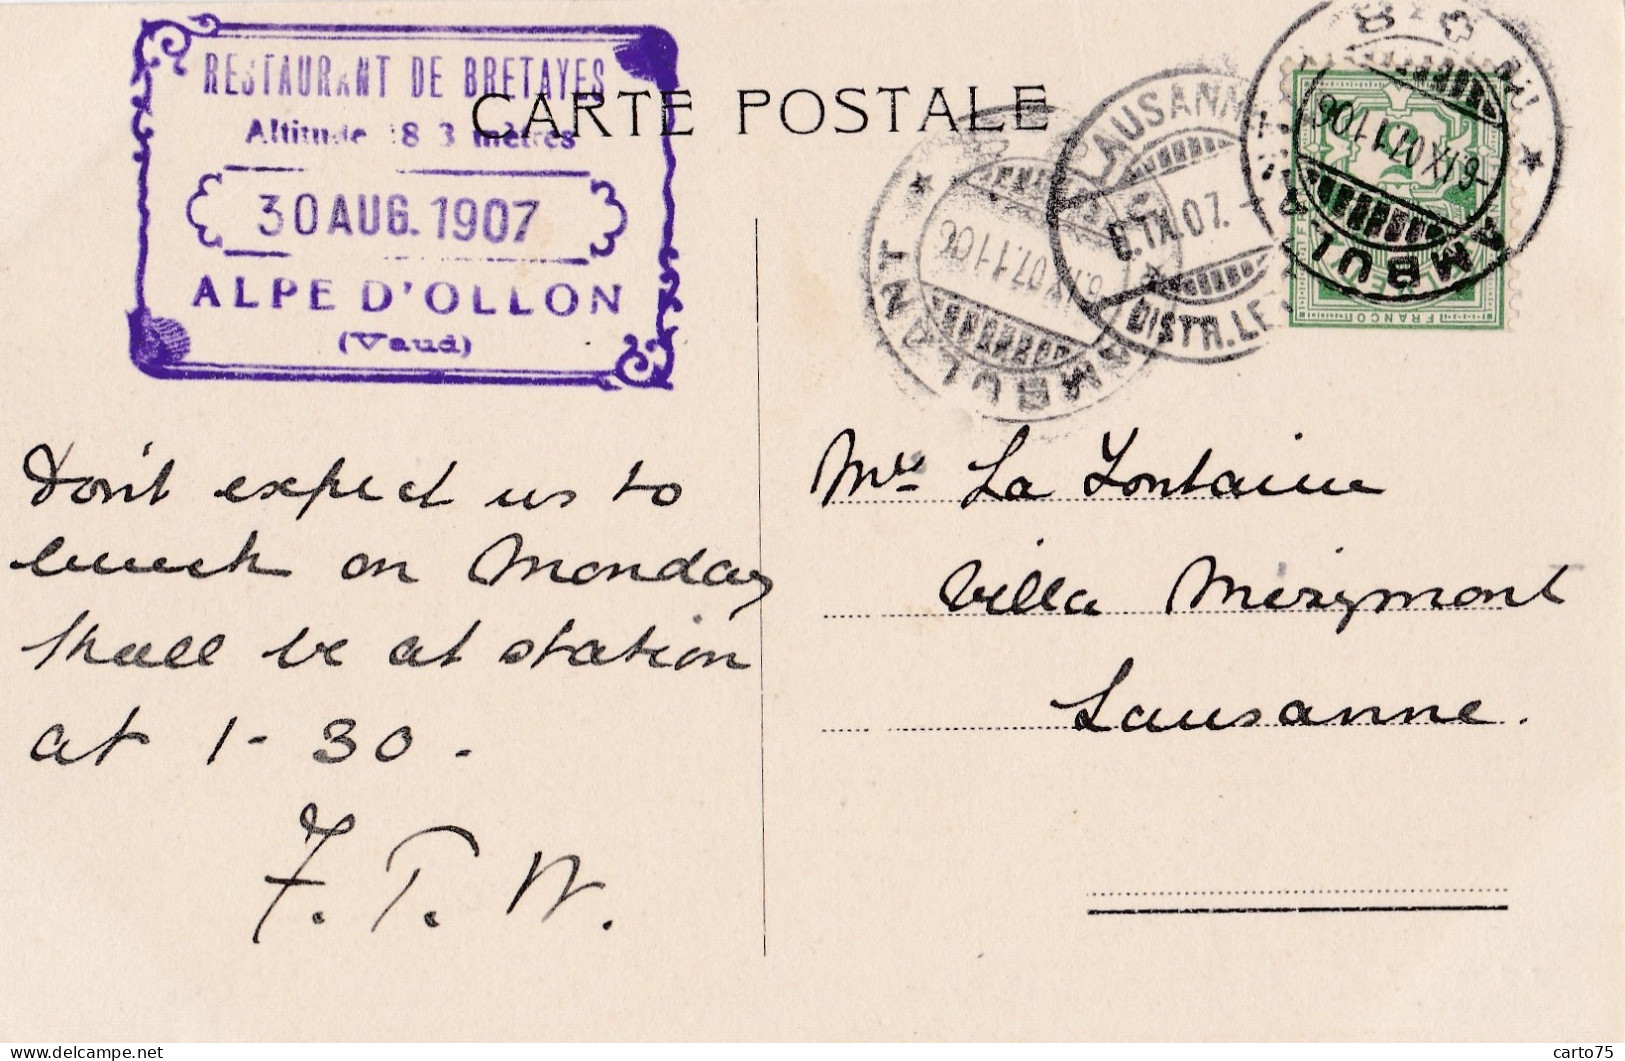 RESTAURANT DE BRETAYES
Altitude 18 3 mètres
30 AUG. 1907
ALPE D'OLLON
(Vaud)
CARTE POSTALE
AMBULANT
-6.IX.07.1106
LAUSANNE
.IX.07.-
DISTR. LE
AMBULANT
-6.IX.07.1106
5
FRANCO
Don't expect us to
lunch on Monday
shall be at station
at 1-30.
F. T. W.
La Fontaine
Villa Mirymont
Lausanne.
carto75